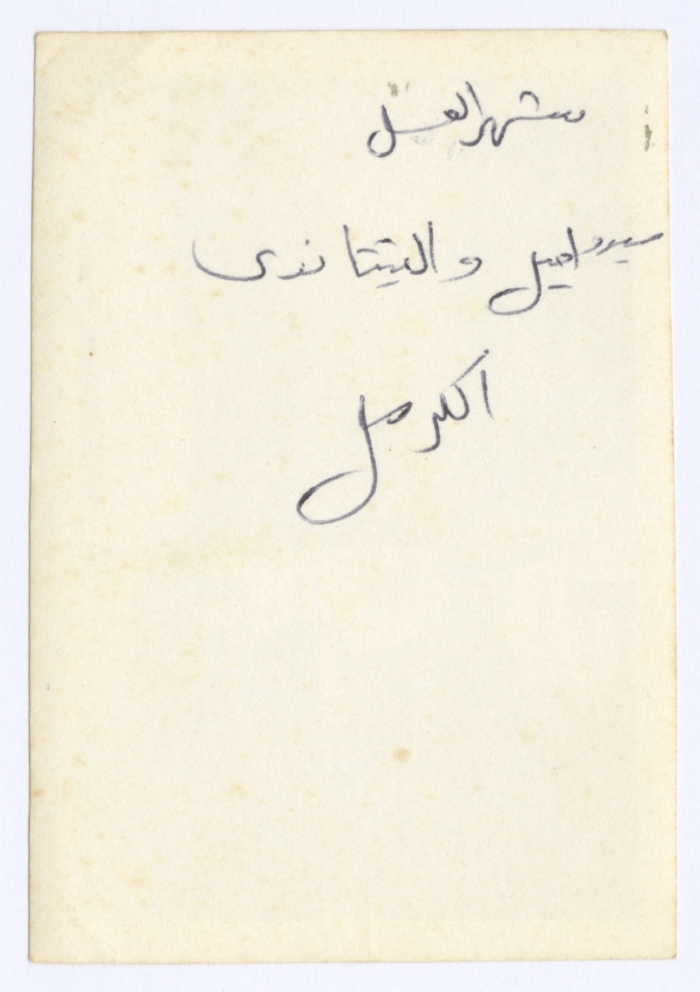 شهر العسل
سيدو اميل والتيتا ندى
الكرمل